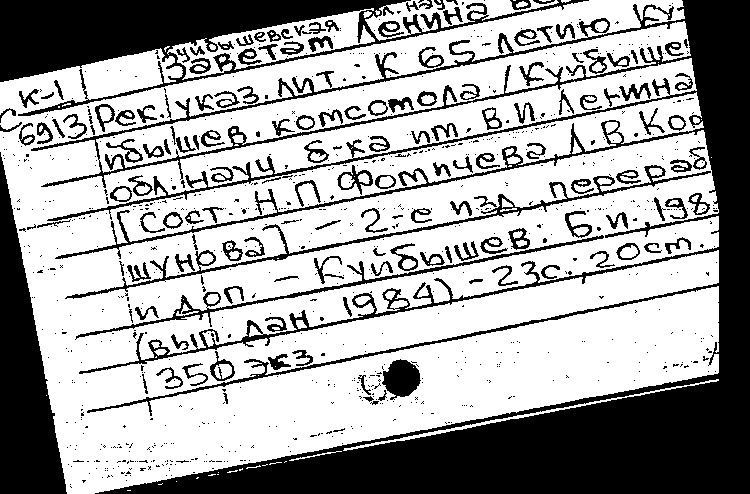 Куйбышевская обл. науч.
Заветам Ленина
К-1
С 6913
Рек. указ. лит.: К 65-летию Ку-
йбышев. комсомола / Куйбыше
обл. науч. б-ка им. В.И. Ленина
[Сост.: Н.П. Фомичева, Л.В. Кор
шунова]. - 2-е изд., перераб
и доп. - Куйбышев: Б.и., 198
(вып. дан. 1984). - 23с.; 20 ст.
350 экз.